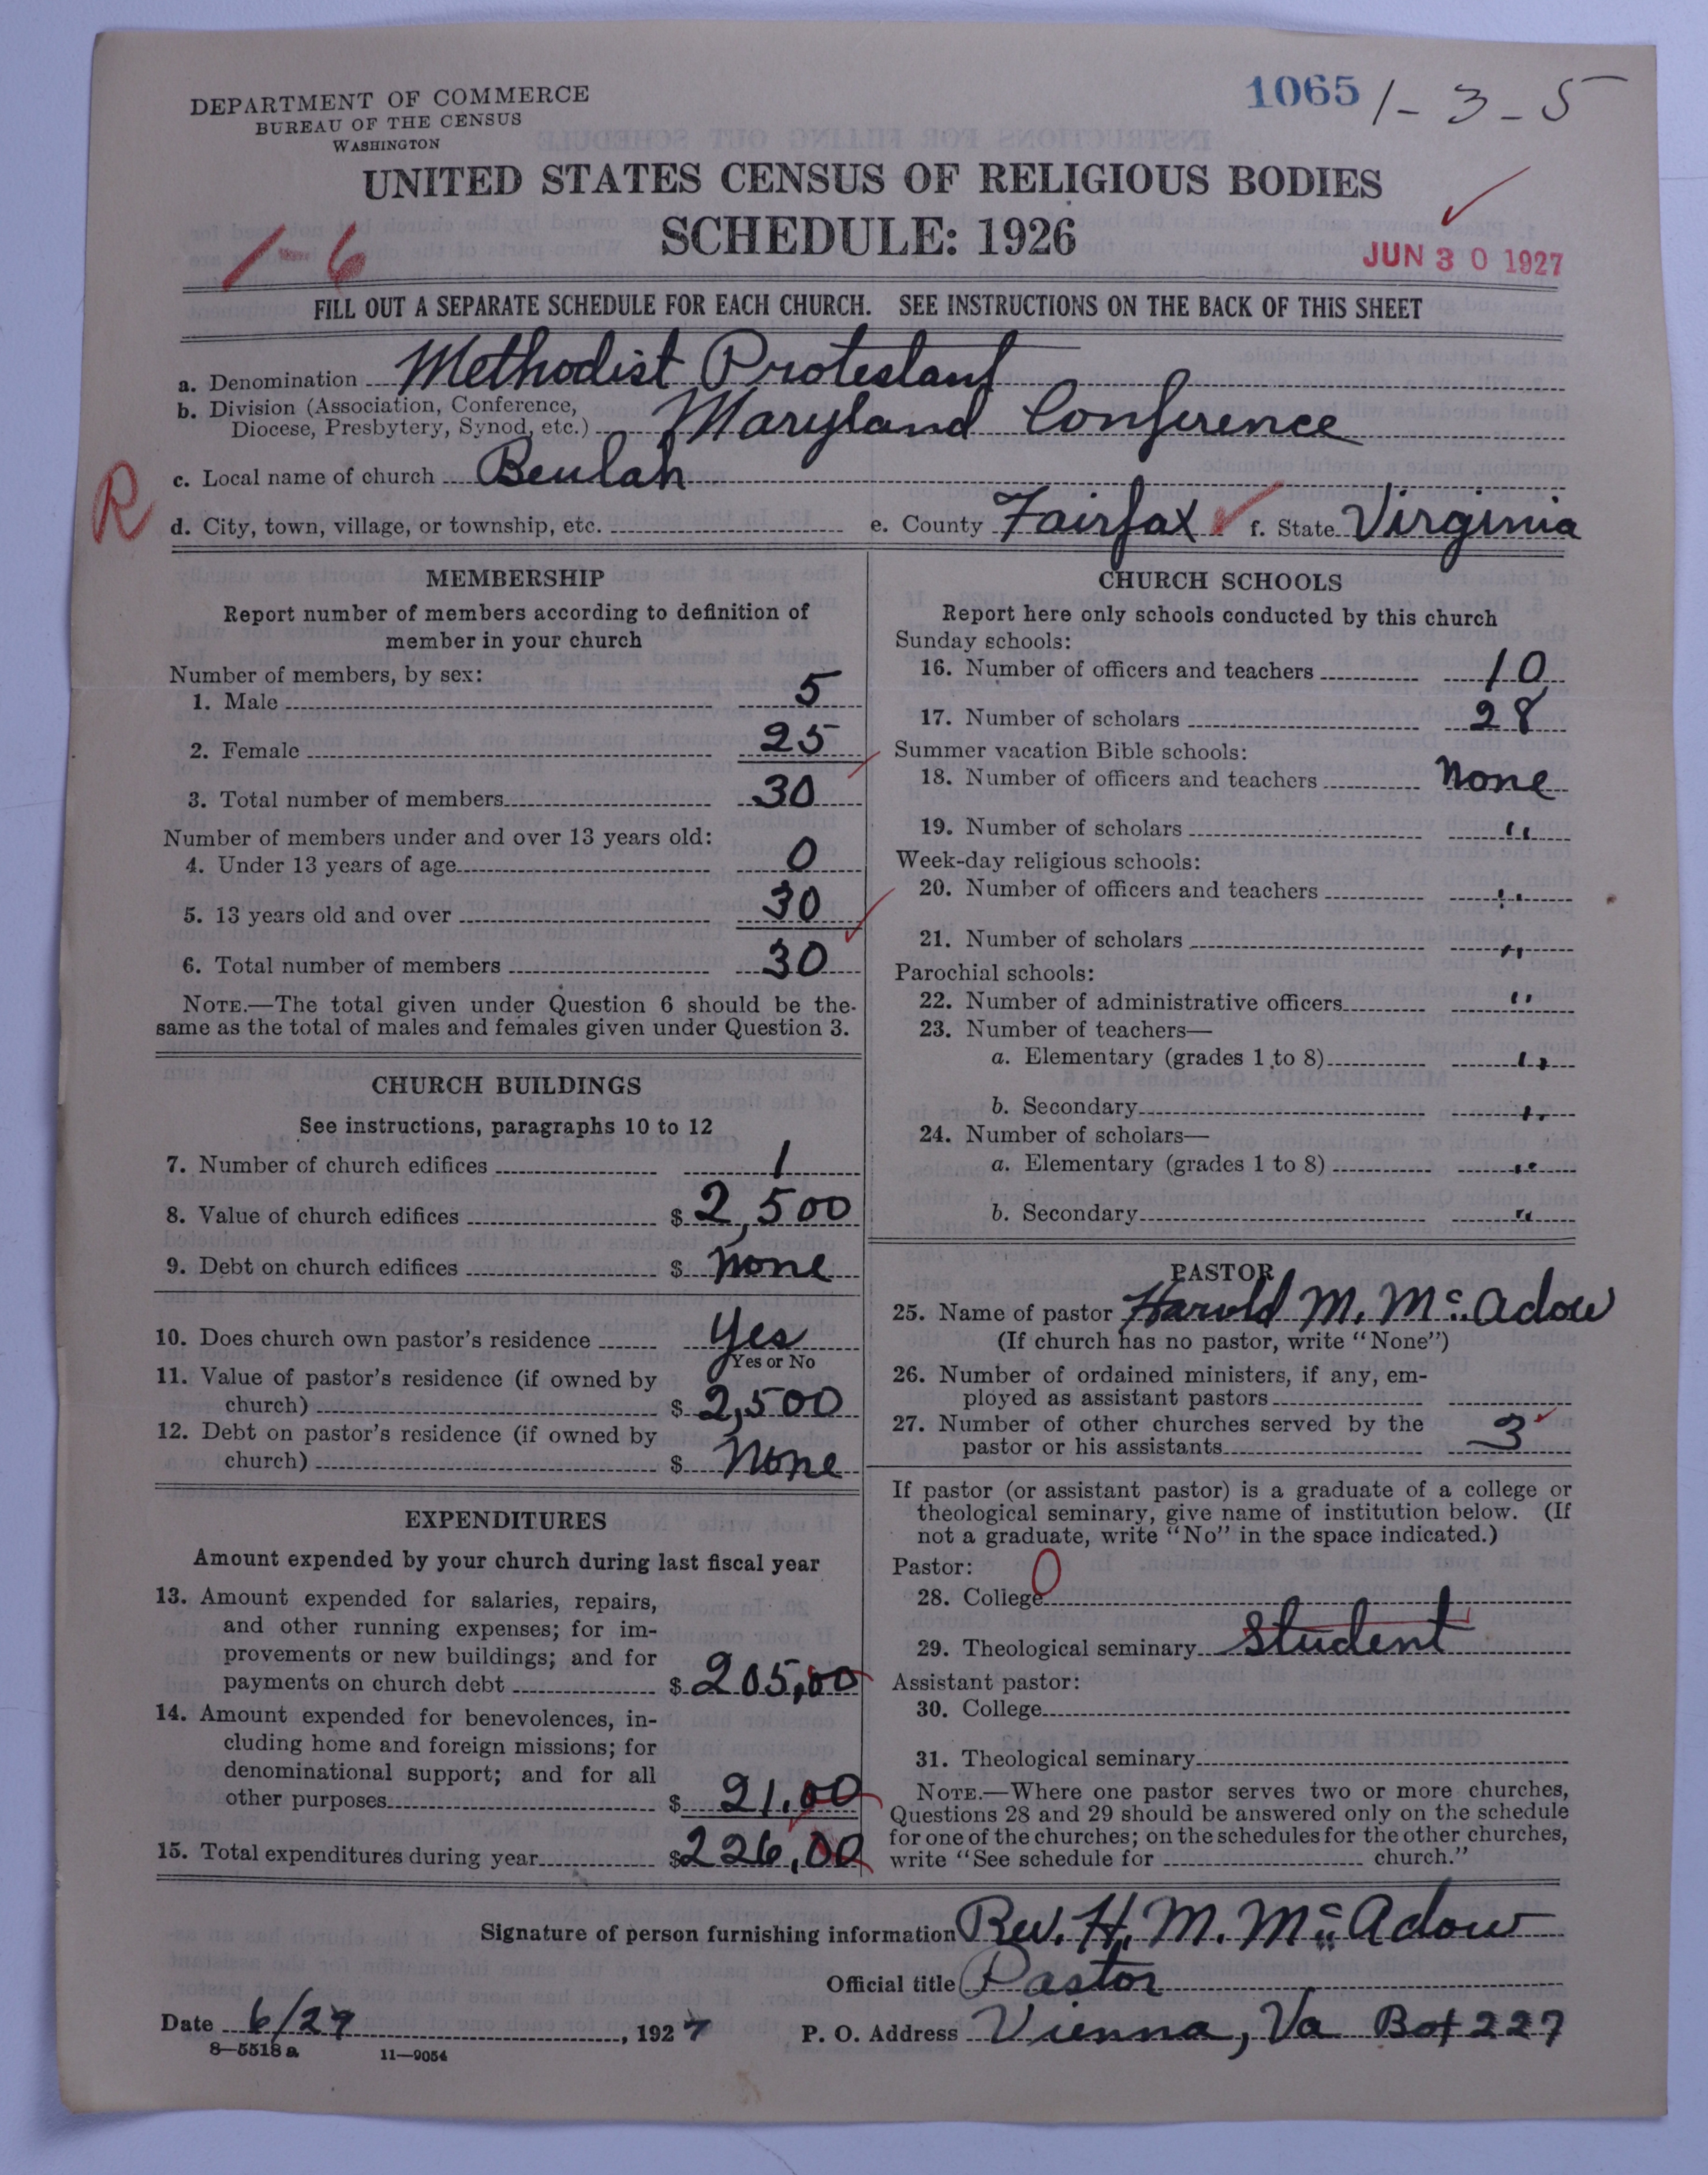 DEPARTMENT OF COMMERCE
BUREAU OF THE CENSUS
WASHINGTON
1065 1-3-5
UNITED STATES CENSUS OF RELIGIOUS BODIES
SCHEDULE: 1926
1-6
JUN 30 1927
FILL OUT A SEPARATE SCHEDULE FOR EACH CHURCH. SEE INSTRUCTIONS ON THE BACK OF THIS SHEET
a. Denomination Methodist Protestant
b. Division (Association, Conference,
Diocese, Presbytery, Synod, etc.) Maryland Conference
c. Local name of church Beulah
R
d. City, town, village, or township, etc. e. County Fairfax f. State Virginia
MEMBERSHIP
Report number of members according to definition of
member in your church
Number of members, by sex:
1. Male 5
2. Female 25
3. Total number of members 30
Number of members under and over 13 years old:
4. Under 13 years of age 0
5. 13 years old and over 30
6. Total number of members 30
NOTE.—The total given under Question 6 should be the
same as the total of males and females given under Question 3.
CHURCH BUILDINGS
See instructions, paragraphs 10 to 12
7. Number of church edifices 1
8. Value of church edifices $ 2,500
9. Debt on church edifices $ None
10. Does church own pastor's residence Yes
Yes or No
11. Value of pastor's residence (if owned by
church) $ 2,500
12. Debt on pastor's residence (if owned by
church) $ None
EXPENDITURES
Amount expended by your church during last fiscal year
13. Amount expended for salaries, repairs,
and other running expenses; for im-
provements or new buildings; and for
payments on church debt $ 205,00
14. Amount expended for benevolences, in-
cluding home and foreign missions; for
denominational support; and for all
other purposes $ 21.00
15. Total expenditures during year $ 226,00
CHURCH SCHOOLS
Report here only schools conducted by this church
Sunday schools:
16. Number of officers and teachers 10
17. Number of scholars 28
Summer vacation Bible schools:
18. Number of officers and teachers None
19. Number of scholars "
Week-day religious schools:
20. Number of officers and teachers "
21. Number of scholars "
Parochial schools:
22. Number of administrative officers "
23. Number of teachers—
a. Elementary (grades 1 to 8) "
b. Secondary "
24. Number of scholars—
a. Elementary (grades 1 to 8) "
b. Secondary "
PASTOR
25. Name of pastor Harold M. Mc Adow
(If church has no pastor, write "None")
26. Number of ordained ministers, if any, em-
ployed as assistant pastors
27. Number of other churches served by the
pastor or his assistants 3
If pastor (or assistant pastor) is a graduate of a college or
theological seminary, give name of institution below. (If
not a graduate, write "No" in the space indicated.)
Pastor: 0
28. College
29. Theological seminary Student
Assistant pastor:
30. College
31. Theological seminary
NOTE.—Where one pastor serves two or more churches,
Questions 28 and 29 should be answered only on the schedule
for one of the churches; on the schedules for the other churches,
write "See schedule for church."
Signature of person furnishing information Rev. H. M. Mc Adow
Official title Pastor
Date 6/27, 1927 P. O. Address Vienna, Va Box 227
8—5518a 11—9054